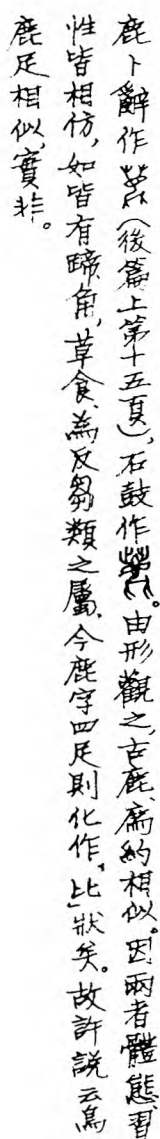 鹿卜辭作（後篇上第十五頁），石鼓作。由形觀之，古鹿、廌約相似。因兩者體態習
性皆相仿，如皆有蹄角，草食、為反芻類之屬，今鹿字四足則化作“比”狀矣。故許說云鳥
鹿足相似，實非。